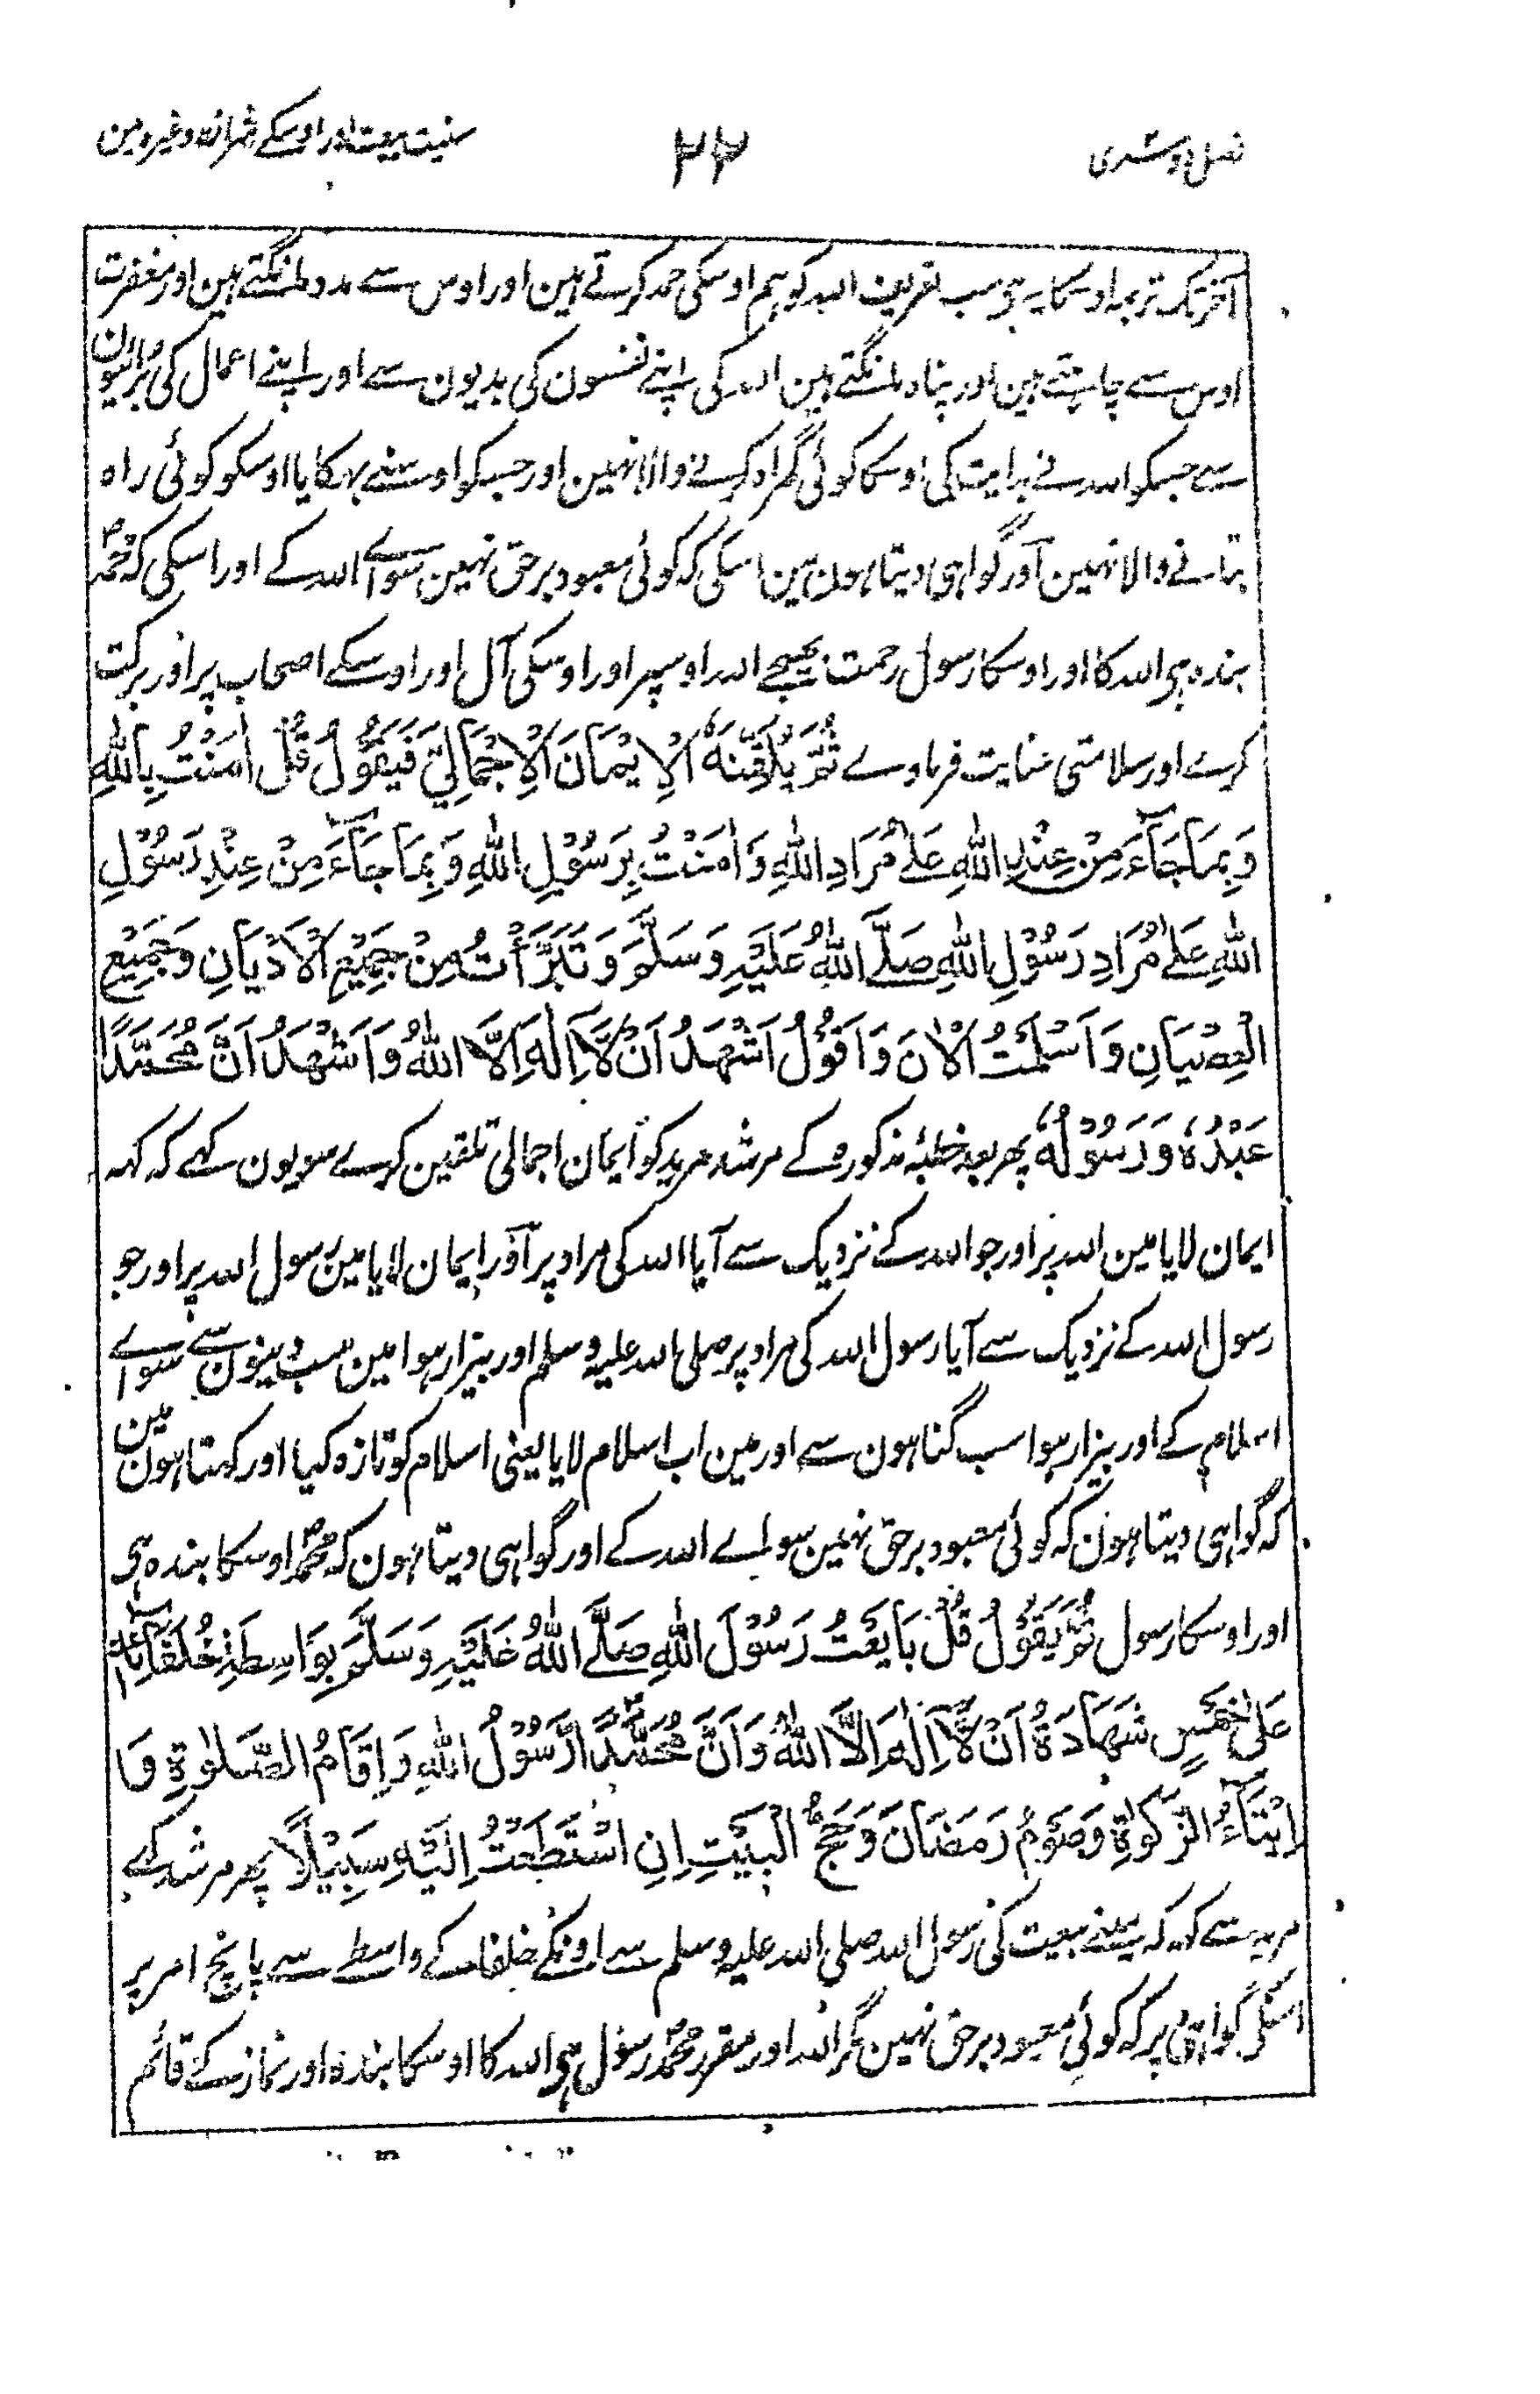 فصل دوسری ۲۲ سنیت بیعت اور اوسکے شرائط وغیرہ مین
آخر تک ترجمہ اوسکا یہ ہی سب تعریف اللہ کو ہم اوسکی حمد کرتے ہین اور اوس سے مدد مانگتے ہین اور مغفرت
اوس سے چاہتے ہین اور پناہ مانگتے ہین اللہ کی اپنے نفسون کی بدیون سے اور اپنے اعمال کی برائیون
سے جسکو اللہ نے ہدایت کی اوسکا کوئی گمراہ کرنے والا نہین اور جسکو اوسنے بہکایا اوسکو کوئی راہ
بتانے والا نہین اور گواہی دیتا ہون مین اسکی کہ کوئی معبود برحق نہین سوائے اللہ کے اور اسکی کہ محمد
بندہ ہی اللہ کا اور اوسکا رسول رحمت بھیجے اللہ اوسپر اور اوسکی آل اور اوسکے اصحاب پر اور برکت
کرے اور سلامتی عنایت فرماوے ثُمَّ يُلَقِّنُهُ الْاِيْمَانَ الْاِجْمَالِيَّ فَيَقُوْلُ قُلْ اٰمَنْتُ بِاللّٰهِ
وَبِمَا جَآءَ مِنْ عِنْدِ اللّٰهِ عَلٰى مُرَادِ اللّٰهِ وَاٰمَنْتُ بِرَسُوْلِ اللّٰهِ وَبِمَا جَآءَ مِنْ عِنْدِ رَسُوْلِ
اللّٰهِ عَلٰى مُرَادِ رَسُوْلِ اللّٰهِ صَلَّى اللّٰهُ عَلَيْهِ وَسَلَّمَ وَتَبَرَّأْتُ مِنْ جَمِيْعِ الْاَدْيَانِ وَجَمِيْعِ
الْعِصْيَانِ وَاَسْلَمْتُ الْاٰنَ وَاَقُوْلُ اَشْهَدُ اَنْ لَّآ اِلٰهَ اِلَّا اللّٰهُ وَاَشْهَدُ اَنَّ مُحَمَّدًا
عَبْدُهٗ وَرَسُوْلُهٗ پھر بعد خطبۂ مذکورہ کے مرشد مرید کو ایمان اجمالی تلقین کرے سو یون کہے کہ کہہ
ایمان لایا مین اللہ پر اور جو اللہ کے نزدیک سے آیا اللہ کی مراد پر اور ایمان لایا مین رسول اللہ پر اور جو
رسول اللہ کے نزدیک سے آیا رسول اللہ کی مراد پر صلی اللہ علیہ وسلم اور بیزار ہوا مین سب دینون سے سوائے
اسلام کے اور بیزار ہوا سب گناہون سے اور مین اب اسلام لایا یعنی اسلام کو تازہ کیا اور کہتا ہون مین
کہ گواہی دیتا ہون کہ کوئی معبود برحق نہین سوائے اللہ کے اور گواہی دیتا ہون کہ محمد اوسکا بندہ ہی
اور اوسکا رسول ثُمَّ يَقُوْلُ قُلْ بَايَعْتُ رَسُوْلَ اللّٰهِ صَلَّى اللّٰهُ عَلَيْهِ وَسَلَّمَ بِوَاسِطَةِ خُلَفَآئِهٖ
عَلٰى خَمْسٍ شَهَادَةُ اَنْ لَّآ اِلٰهَ اِلَّا اللّٰهُ وَاَنَّ مُحَمَّدًا رَّسُوْلُ اللّٰهِ وَاِقَامُ الصَّلٰوةِ وَ
اِيْتَآءُ الزَّكٰوةِ وَصَوْمُ رَمَضَانَ وَحَجُّ الْبَيْتِ اِنِ اسْتَطَعْتُ اِلَيْهِ سَبِيْلًا پھر مرشد کہے
مرید سے کہ کہہ مینے بیعت کی رسول اللہ صلی اللہ علیہ وسلم سے اونکے خلفا کے واسطے سے پانچ امر پر
اسکی گواہی پر کہ کوئی معبود برحق نہین مگر اللہ اور مقرر محمد رسول ہی اللہ کا اوسکا بندہ اور نماز کے قائم